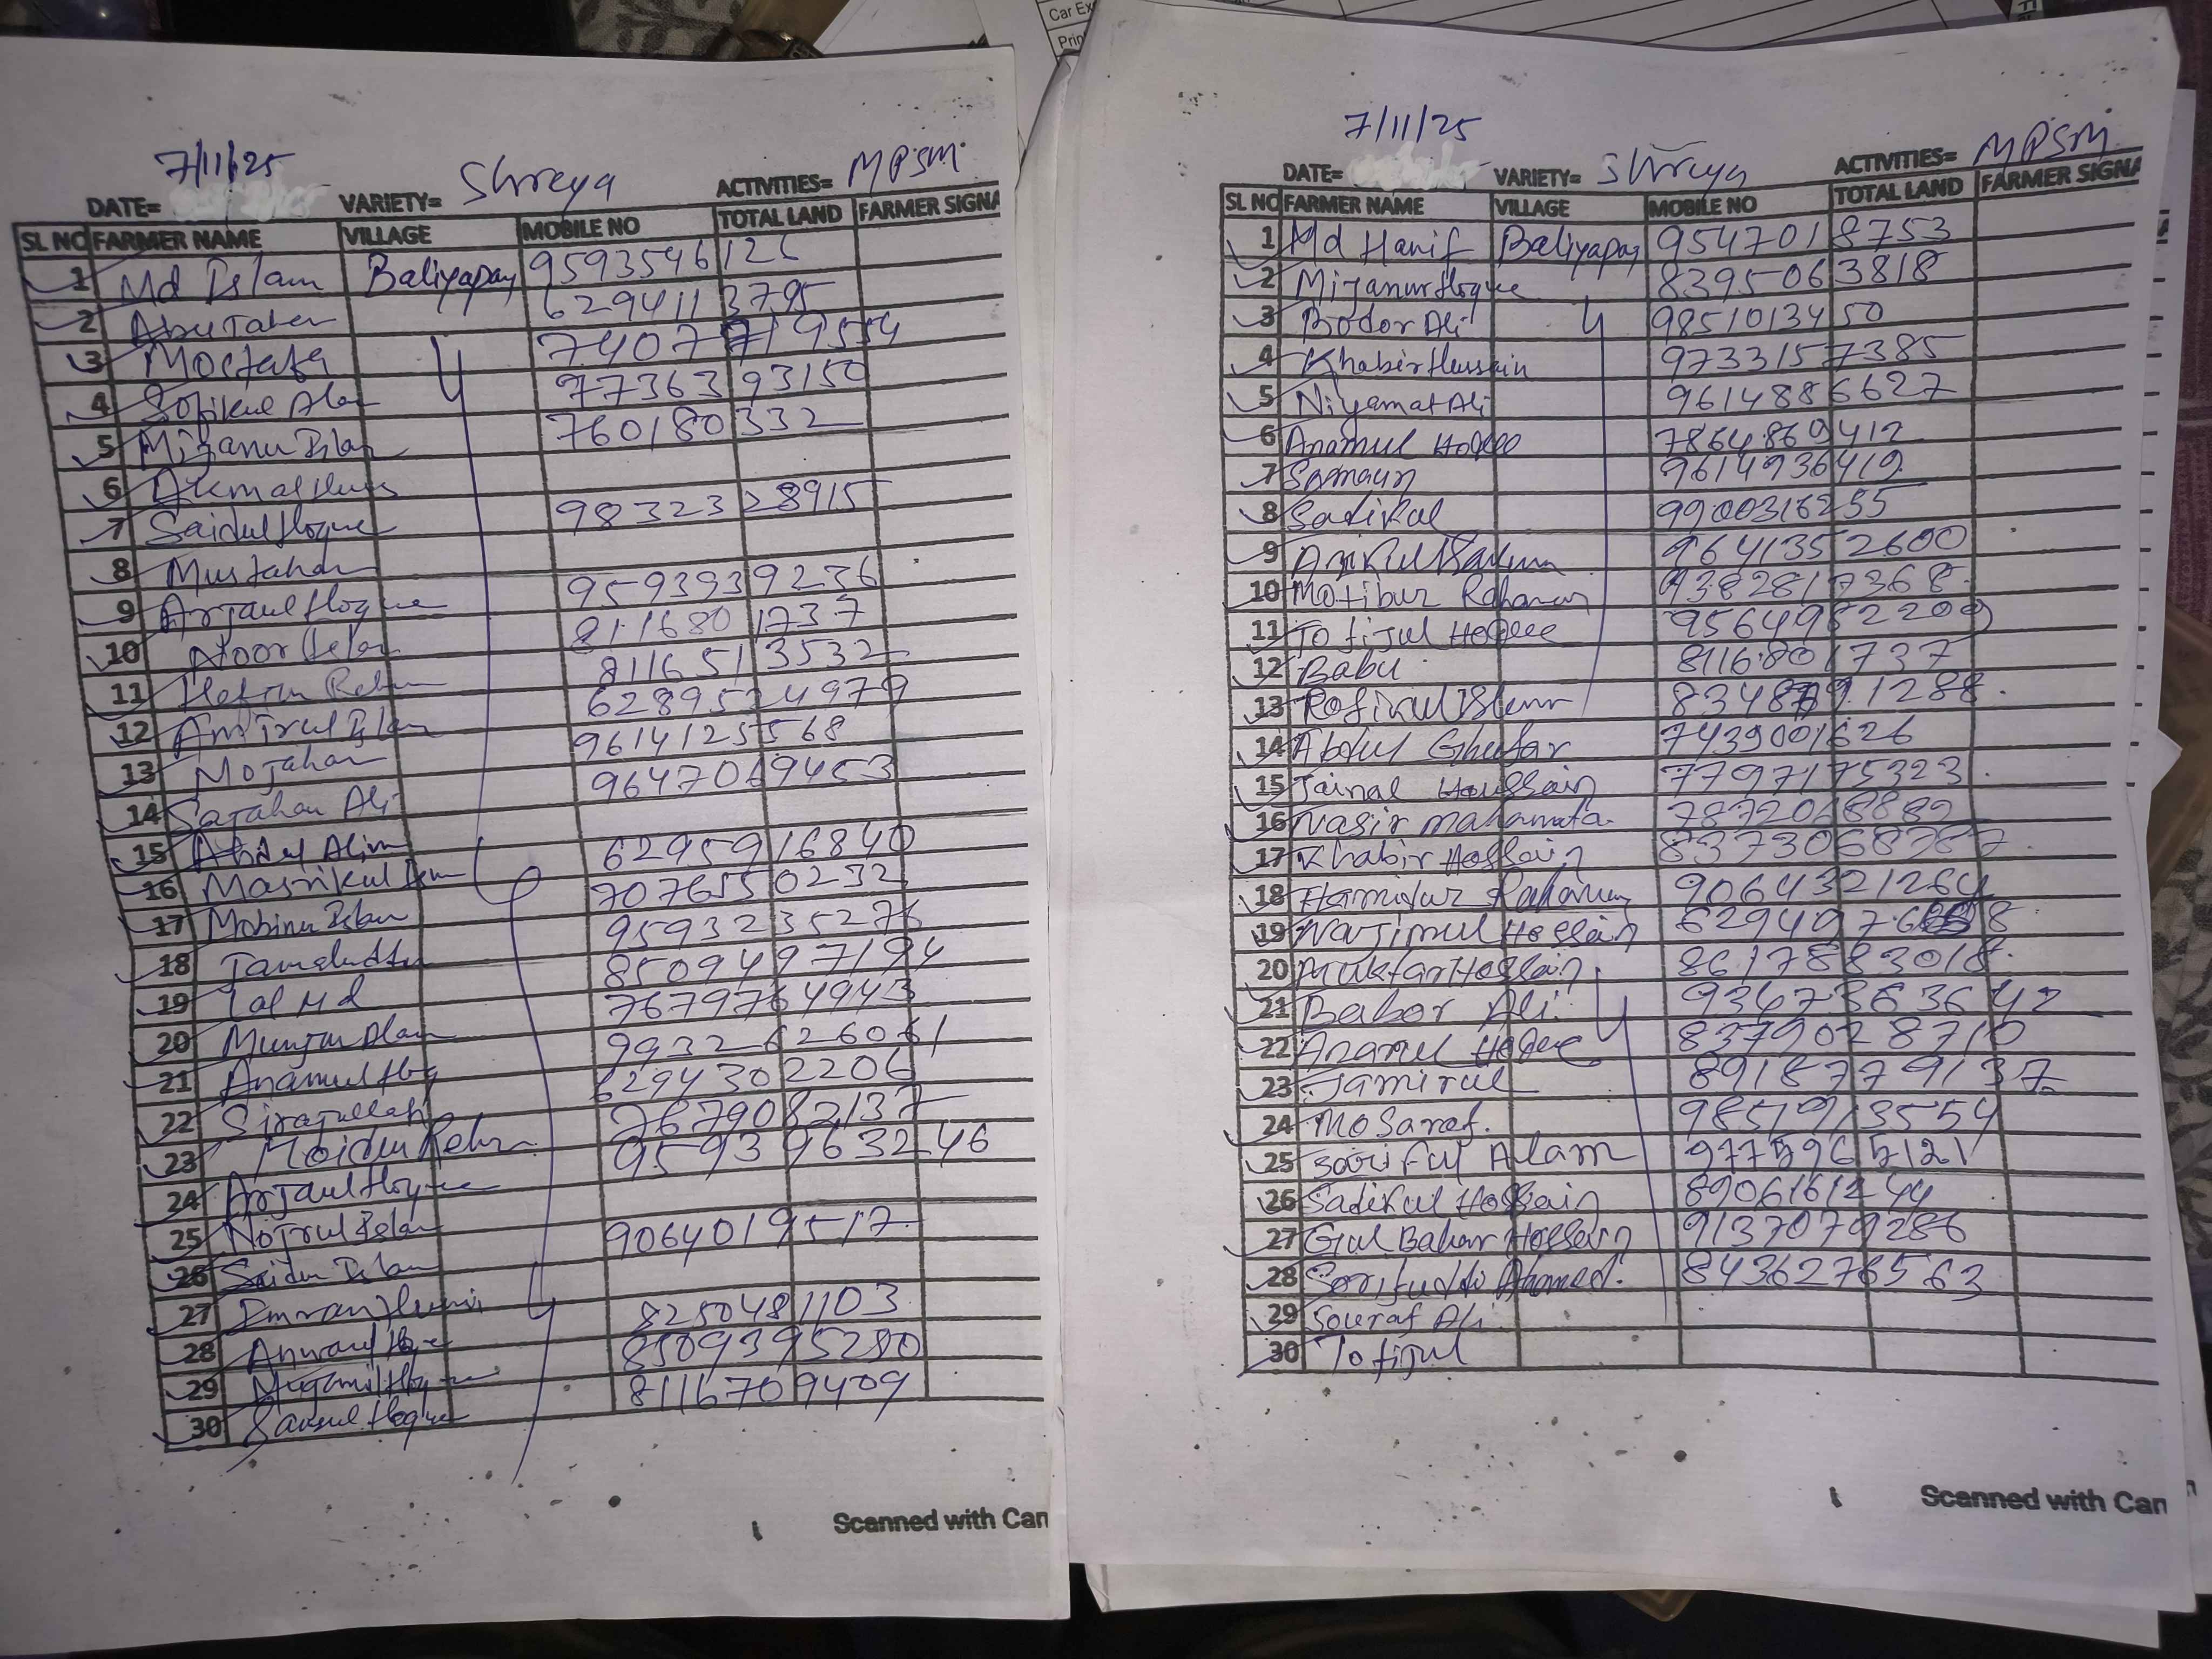 Car Ex
Prin
7/11/25
DATE= VARIETY= Shreya ACTIVITIES= MPSM
SL NO FARMER NAME VILLAGE MOBILE NO TOTAL LAND FARMER SIGNA
1 Md Islam Baliyapay 9593546126
2 Abu Taher 6294113795
3 Mostafa 7407719554
4 Sofikul Alam 7736393150
5 Mijanu Islam 760180332
6
7 Saidul Hoque 9832328915
8 Mustahar
9 Arjaul Hoque 9593939236
10 Noor Islam 8116801737
11 8116513532
12 Amirul Islam 6289524979
13 Mojahar 9614125568
14 Sajahan Ali 9647069453
15 Abdul Alim
16 6295916840
17 Mobinu Islam 7076550232
18 9593235276
19 Lal Md 8509497194
20 Munjur Alam 7679764943
21 Anamul Hoq 9932626061
22 Sirajullah 6294302206
23 7679082137
24 Arjaul Hoque 9593963246
25 Nojrul Islam
26 Saidu Islam 9064019517
27
28 Anwarul Hoque 8250481103
29 8509395280
30 Samsul Hoque 8116709409
Scanned with Can
7/11/25
DATE= VARIETY= Shreya ACTIVITIES= MPSM
SL NO FARMER NAME VILLAGE MOBILE NO TOTAL LAND FARMER SIGNA
1 Md Hanif Baliyapay 9547018753
2 Mijanur Hoque 8395063818
3 Bodor Ali 9851013450
4 Khabir Hussain 9733157385
5 Niyamat Ali 9614886627
6 Anamul Hoque 7864869412
7 Somaun 9614936419
8 Sadikal 9900316255
9 9641352600
10 Motibur Rahaman 9382817368
11 Tofijul Hoque 9564952209
12 Babu 8116801737
13 Rofikul Islam
14 Abdul Ghafar 7439001626
15 Jainal Hossain 7797175323
16 Nasir mahamata 7872068889
17 Khabir Hossain 8373068787
18 Hamidur Rahaman 9064321264
19 Narjimul Hossain
20 Muktar Hossain 8617883018
21 Babor Ali 9367363642
22 Anamul Hoque 8379028710
23 Jamirul 8918779137
24 Mosaraf. 9851913554
25 Soriful Alam 9775965121
26 Sadikul Hossain 8906161244
27 Gul Bahar Hossain 9137079286
28 8436276563
29 Souraf Ali
30 Tofijul
Scanned with Can